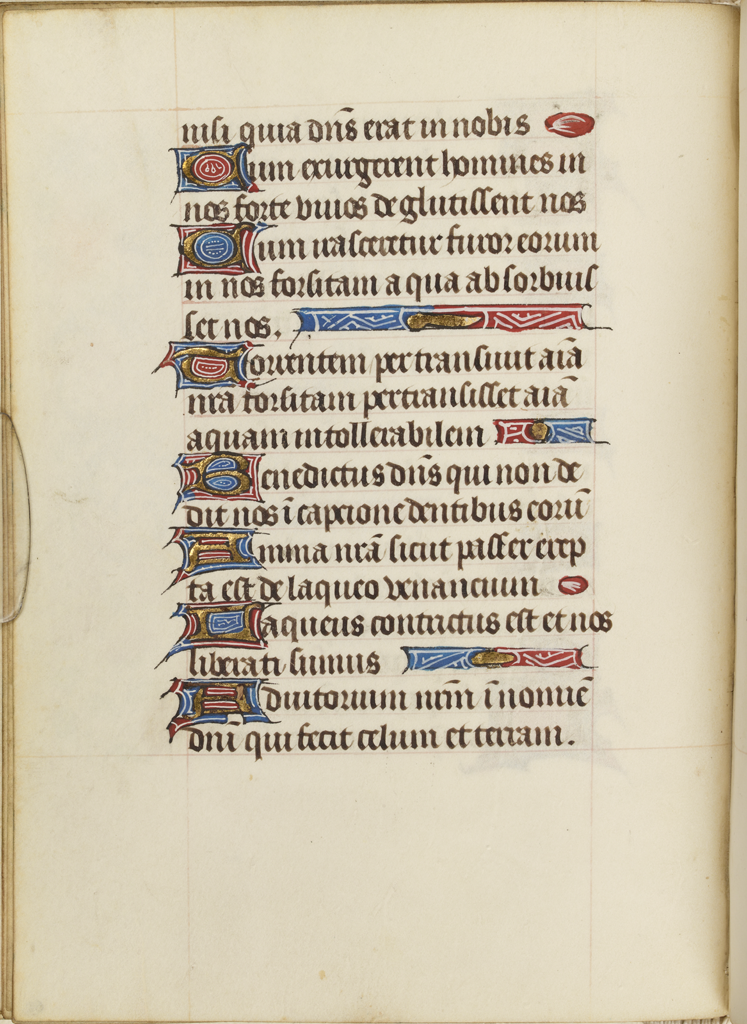 nisi quia dns̄ erat in nobis
Cum exurgerent homines in
nos forte vivos deglutissent nos
Cum irasceretur furor eorum
in nos forsitam aqua absorbuis
set nos.
Torrentem pertransiuit aīa
nrā forsitam pertransisset aīā
aquam intollerabilem
Benedictus dns̄ qui non de
dit nos ī capcione dentibus eorū
Anima nrā sicut passer erep
ta est de laqueo venancium
Laqueus contrictus est et nos
liberati sumus
Adiutorium nrm̄ ī nomīe
dnī qui fecit celum et terram.